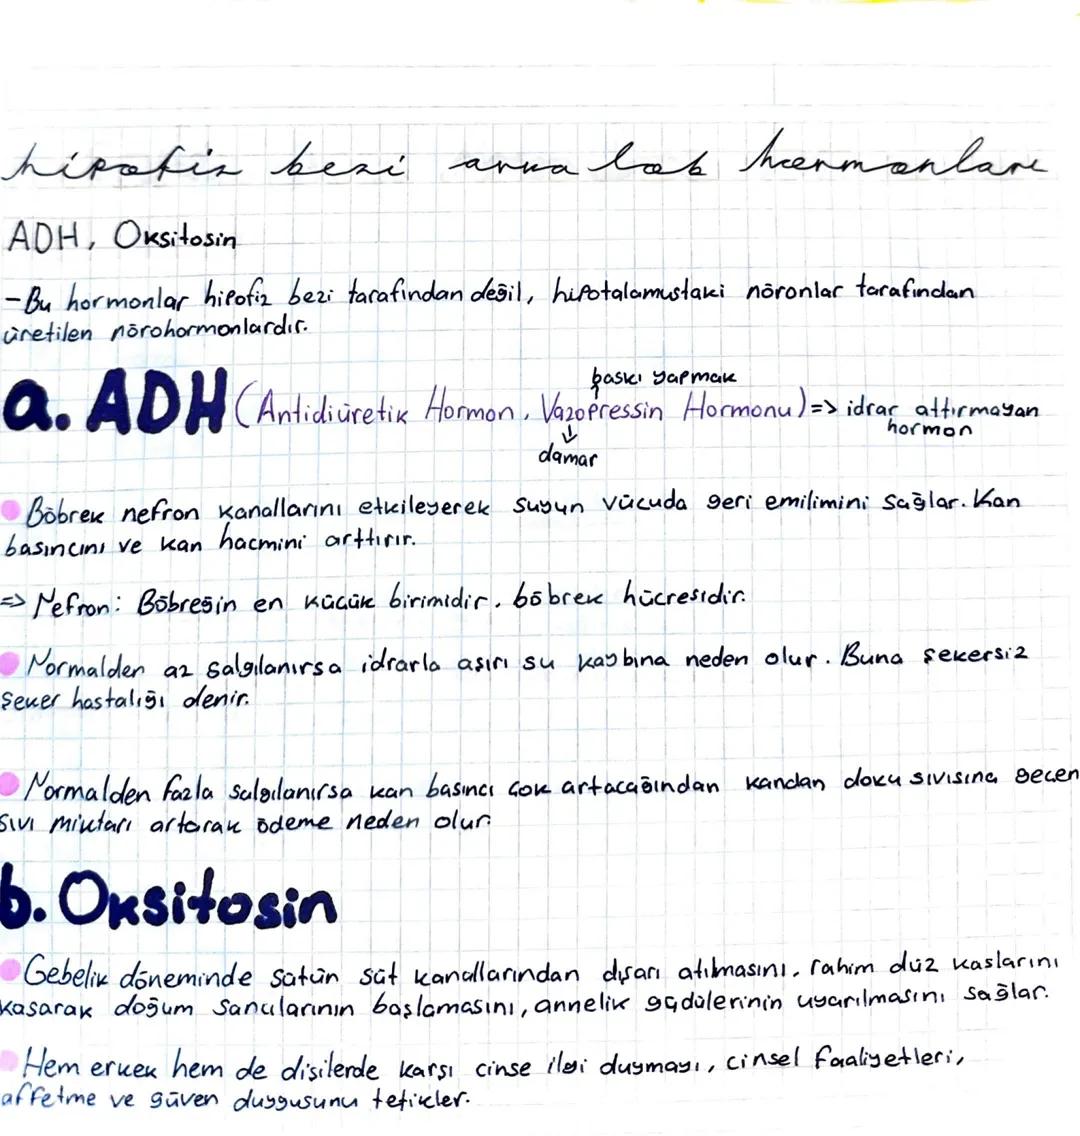 hipofiz bezi arka lob hormonları
ADH, Oksitosin
-Bu hormonlar hipofiz bezi tarafından değil, hipotalamustaki nöronlar tarafından
üretilen nörohormonlardır.
baskı yapmak
a. ADH (Antidiüretik Hormon, Vazopressin Hormonu) => idrar attırmayan
hormon
damar
Böbrek nefron kanallarını etkileyerek suyun vücuda geri emilimini sağlar. Kan
basıncını ve kan hacmini arttırır.
=> Nefron: Böbreğin en küçük birimidir. böbrek hücresidir.
Normalden az salgılanırsa idrarla aşırı su kaybına neden olur. Buna şekersiz
şeker hastalığı denir.
Normalden fazla salgılanırsa kan basıncı çok artacağından kandan doku sıvısına geçen
sıvı miktarı artarak ödeme neden olur
b. Oksitosin
Gebelik döneminde sütün süt kanallarından dışarı atılmasını, rahim düz kaslarını
kasarak doğum sancılarının başlamasını, annelik güdülerinin uyarılmasını sağlar.
Hem erkek hem de dişilerde karşı cinse ilgi duymayı, cinsel faaliyetleri,
affetme ve güven duygusunu tetikler.